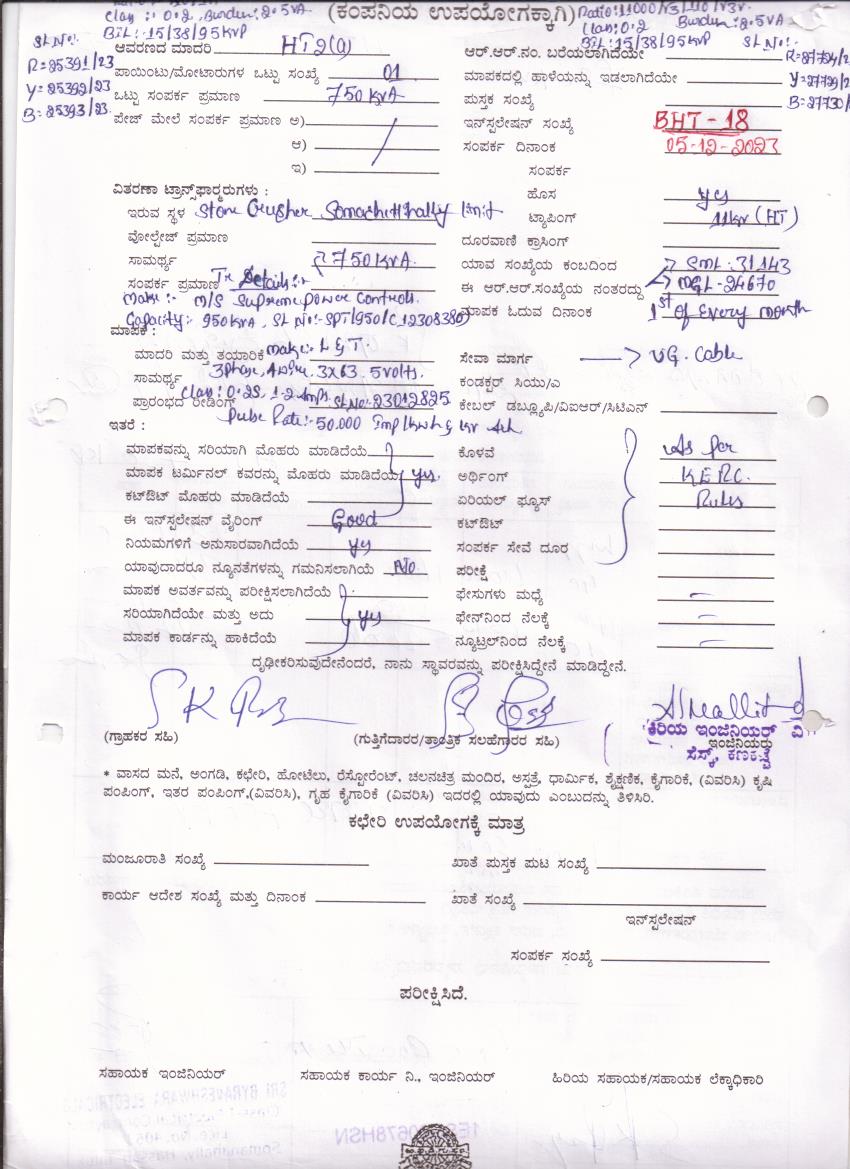 (ಕಂಪನಿಯ ಉಪಯೋಗಕ್ಕಾಗಿ)
Class: 0.2, Burden: 2.5VA
BIL: 15/38/95KVP
Sl No:-
R=25391/23
Y=25392/23
B=25393/23
Ratio: 11000/√3/110/√3V.
Class: 0.2 Burden: 2.5VA
BIL: 15/38/95KVP
Sl No:-
ಆವರಣದ ಮಾದರಿ HT2(a)
ಆರ್.ಆರ್.ನಂ. ಬರೆಯಲಾಗಿದೆಯೇ
ಪಾಯಿಂಟು/ಮೋಟಾರುಗಳ ಒಟ್ಟು ಸಂಖ್ಯೆ 01
ಮಾಪಕದಲ್ಲಿ ಹಾಳೆಯನ್ನು ಇಡಲಾಗಿದೆಯೇ
ಒಟ್ಟು ಸಂಪರ್ಕ ಪ್ರಮಾಣ 750 KVA
ಪುಸ್ತಕ ಸಂಖ್ಯೆ
ಪೇಜ್ ಮೇಲೆ ಸಂಪರ್ಕ ಪ್ರಮಾಣ ಅ)
ಇನ್ಸ್ಟಲೇಷನ್ ಸಂಖ್ಯೆ BHT-18
ಆ)
ಸಂಪರ್ಕ ದಿನಾಂಕ 05-12-2023
ಇ)
ಸಂಪರ್ಕ
ವಿತರಣಾ ಟ್ರಾನ್ಸ್‌ಫಾರ್ಮರುಗಳು :
ಹೊಸ yes
ಇರುವ ಸ್ಥಳ Stone Crusher Somachitthally limit
ಟ್ಯಾಪಿಂಗ್ 11KV (HT)
ವೋಲ್ಟೇಜ್ ಪ್ರಮಾಣ
ದೂರವಾಣಿ ಕ್ರಾಸಿಂಗ್
ಸಾಮರ್ಥ್ಯ 750 KVA
ಯಾವ ಸಂಖ್ಯೆಯ ಕಂಬದಿಂದ SML: 31143
ಸಂಪರ್ಕ ಪ್ರಮಾಣ Tr Details:-
ಈ ಆರ್.ಆರ್.ಸಂಖ್ಯೆಯ ನಂತರದ್ದು MGL-24670
Make:- M/S Supreme power Controls.
ಮಾಪಕ ಓದುವ ದಿನಾಂಕ 1st of Every month
Capacity: 950KVA, Sl No:-SPT/950/C12308380
ಮಾಪಕ :
ಮಾದರಿ ಮತ್ತು ತಯಾರಿಕೆ make:- L & T.
ಸೇವಾ ಮಾರ್ಗ UG. Cable
ಸಾಮರ್ಥ್ಯ 3Phase, 4 wire, 3X63.5volts.
ಕಂಡಕ್ಟರ್ ಸಿಯು/ಎ
ಪ್ರಾರಂಭದ ರೀಡಿಂಗ್ Class: 0.2S, 1.2 Amps Sl No: 23012825
ಕೇಬಲ್ ಡಬ್ಲ್ಯೂಪಿ/ವಿಐಆರ್/ಸಿಟಿಎನ್
ಇತರೆ : Pulse Rate:-50.000 Imp/Kwh
ಮಾಪಕವನ್ನು ಸರಿಯಾಗಿ ಮೊಹರು ಮಾಡಿದೆಯೆ
ಕೊಳವೆ As per
ಮಾಪಕ ಟರ್ಮಿನಲ್ ಕವರನ್ನು ಮೊಹರು ಮಾಡಿದೆಯೆ yes.
ಅರ್ಥಿಂಗ್ KERC.
ಕಟ್‌ಔಟ್ ಮೊಹರು ಮಾಡಿದೆಯೆ
ಏರಿಯಲ್ ಫ್ಯೂಸ್ Rules
ಈ ಇನ್‌ಸ್ಟಲೇಷನ್ ವೈರಿಂಗ್ Good
ಕಟ್‌ಔಟ್
ನಿಯಮಗಳಿಗೆ ಅನುಸಾರವಾಗಿದೆಯೆ yes
ಸಂಪರ್ಕ ಸೇವೆ ದೂರ
ಯಾವುದಾದರೂ ನ್ಯೂನತೆಗಳನ್ನು ಗಮನಿಸಲಾಗಿಯೆ No
ಪರೀಕ್ಷೆ
ಮಾಪಕ ಅವರ್ತವನ್ನು ಪರೀಕ್ಷಿಸಲಾಗಿದೆಯೆ
ಫೇಸುಗಳು ಮಧ್ಯೆ
ಸರಿಯಾಗಿದೆಯೇ ಮತ್ತು ಅದು yes
ಫೇಸ್‌ನಿಂದ ನೆಲಕ್ಕೆ
ಮಾಪಕ ಕಾರ್ಡನ್ನು ಹಾಕಿದೆಯೆ
ನ್ಯೂಟ್ರಲ್‌ನಿಂದ ನೆಲಕ್ಕೆ
ದೃಢೀಕರಿಸುವುದೇನೆಂದರೆ, ನಾನು ಸ್ಥಾವರವನ್ನು ಪರೀಕ್ಷಿಸಿದ್ದೇನೆ ಮಾಡಿದ್ದೇನೆ.
(ಗ್ರಾಹಕರ ಸಹಿ)
(ಗುತ್ತಿಗೆದಾರರ/ತಾಂತ್ರಿಕ ಸಲಹೆಗಾರರ ಸಹಿ)
ಕಿರಿಯ ಇಂಜಿನಿಯರ್ ವಿ
ಇಂಜಿನಿಯರು
* ವಾಸದ ಮನೆ, ಅಂಗಡಿ, ಕಛೇರಿ, ಹೋಟೆಲು, ರೆಸ್ಟೋರೆಂಟ್, ಚಲನಚಿತ್ರ ಮಂದಿರ, ಅಸ್ಪತ್ರೆ, ಧಾರ್ಮಿಕ, ಶೈಕ್ಷಣಿಕ, ಕೈಗಾರಿಕೆ, (ವಿವರಿಸಿ) ಕೃಷಿ
ಪಂಪಿಂಗ್, ಇತರ ಪಂಪಿಂಗ್,(ವಿವರಿಸಿ), ಗೃಹ ಕೈಗಾರಿಕೆ (ವಿವರಿಸಿ) ಇದರಲ್ಲಿ ಯಾವುದು ಎಂಬುದನ್ನು ತಿಳಿಸಿರಿ.
ಕಛೇರಿ ಉಪಯೋಗಕ್ಕೆ ಮಾತ್ರ
ಮಂಜೂರಾತಿ ಸಂಖ್ಯೆ
ಖಾತೆ ಪುಸ್ತಕ ಪುಟ ಸಂಖ್ಯೆ
ಕಾರ್ಯ ಆದೇಶ ಸಂಖ್ಯೆ ಮತ್ತು ದಿನಾಂಕ
ಖಾತೆ ಸಂಖ್ಯೆ
ಇನ್‌ಸ್ಟಲೇಷನ್
ಸಂಪರ್ಕ ಸಂಖ್ಯೆ
ಪರೀಕ್ಷಿಸಿದೆ.
ಸಹಾಯಕ ಇಂಜಿನಿಯರ್
ಸಹಾಯಕ ಕಾರ್ಯ ನಿ., ಇಂಜಿನಿಯರ್
ಹಿರಿಯ ಸಹಾಯಕ/ಸಹಾಯಕ ಲೆಕ್ಕಾಧಿಕಾರಿ